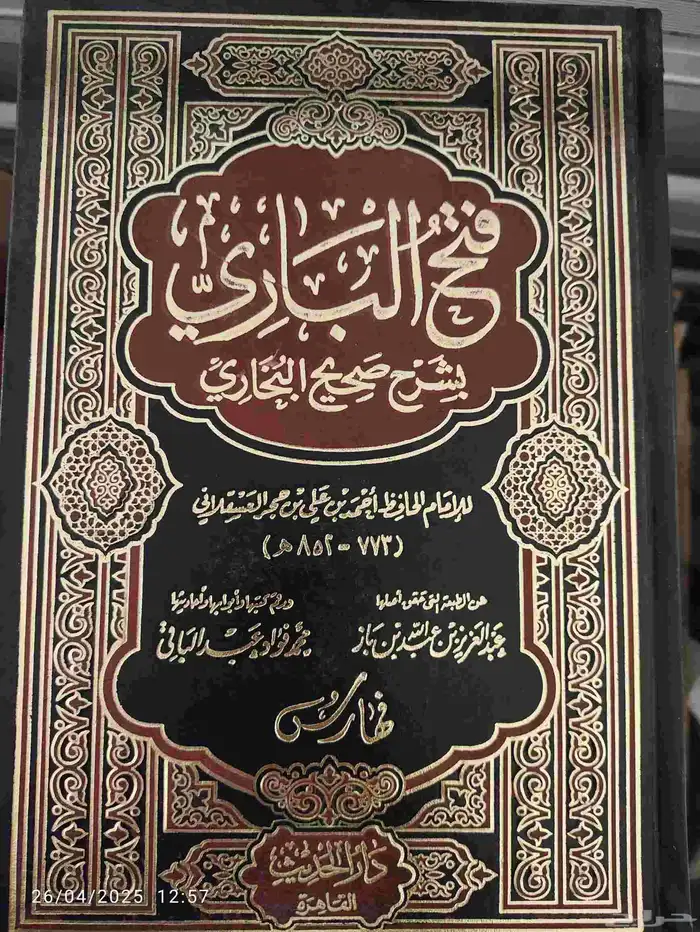 فتح الباري
بشرح صحيح البخاري
للإمام الحافظ أحمد بن علي بن حجر العسقلاني
(٧٧٣ - ٨٥٢ هـ)
عن الطبعة التي حقق أصلها
عبد العزيز بن عبد الله بن باز
ورقم كتبها وأبوابها وأحاديثها
محمد فؤاد عبد الباقي
فهارس
دار الحديث
القاهرة
26/04/2025 12:57
حراج